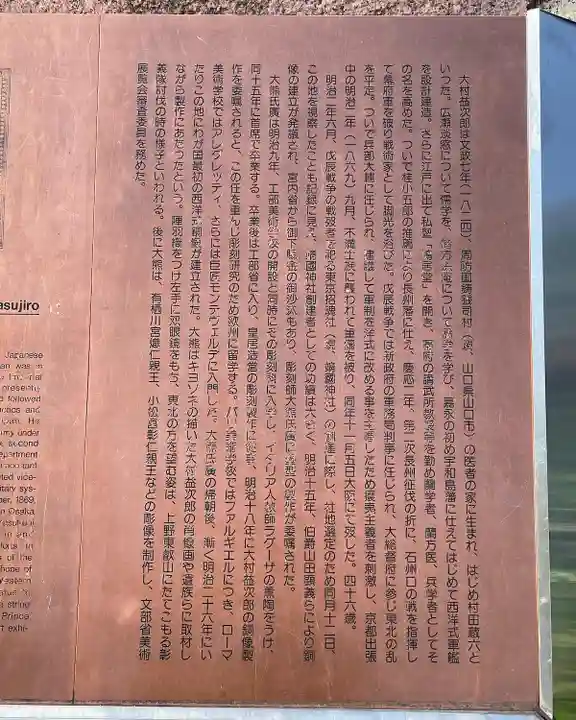 大村益次郎は文政七年(一八二四)、周防国鋳銭司村(現、山口県山口市)の医者の家に生まれ、はじめ村田蔵六と
いった。広瀬淡窓について儒学を、緒方洪庵について蘭学を学び、嘉永の初め宇和島藩に仕えてはじめて西洋式軍艦
を設計建造。さらに江戸に出て私塾「鳩居堂」を開き、幕府の講武所教授等を勤め蘭学者、蘭方医、兵学者としてそ
の名を高めた。ついで桂小五郎の推薦により長州藩に仕え、慶応二年、第二次長州征伐の折に、石州口の戦を指揮し
て幕府軍を破り戦術家として脚光を浴びた。戊辰戦争では新政府の軍務局判事に任じられ、大総督府に参じ東北の乱
を平定。ついで兵部大輔に任じられ、建議して軍制を洋式に改める事を主導したため攘夷主義者を刺激し、京都出張
中の明治二年(一八六九)九月、不満士族に襲われて重傷を被り、同年十一月五日大阪にて歿した。四十六歳。
明治二年六月、戊辰戦争の戦歿者を祀る東京招魂社(現、靖國神社)の創建に際し、社地選定のため同月十二日、
この地を視察したことも記録に見え、靖國神社創建者としての功績は大きく、明治十五年、伯爵山田顕義らにより銅
像の建立が発議され、宮内省から御下賜金の御沙汰もあり、彫刻師大熊氏廣に原型の製作が委嘱された。
大熊氏廣は明治九年、工部美術学校の開設と同時にその彫刻科に入学し、イタリア人教師ラグーザの薫陶をうけ、
同十五年に首席で卒業する。卒業後は工部省に入り、皇居造営の彫刻製作に従事、明治十八年に大村益次郎の銅像製
作を委嘱されると、この任を重んじ彫刻研究のため欧州に留学する。パリ美術学校ではファルギエルにつき、ローマ
美術学校ではアレグレッティ、さらには巨匠モンテヴェルデに入門した。大熊氏廣の帰朝後、漸く明治二十六年にい
たりこの地にわが国最初の西洋式銅像が建立された。大熊はキヨソネの描いた大村益次郎の肖像画や遺族らに取材し
ながら製作にあたったという。陣羽織をつけ左手に双眼鏡をもち、東北の方を望む姿は、上野東叡山にたてこもる彰
義隊討伐の時の様子といわれる。後に大熊は、有栖川宮熾仁親王、小松宮彰仁親王などの彫像を制作し、文部省美術
展覧会審査委員を務めた。
asujiro
Japanese
an was in
presently
d followed
ancs and
my under
second
partment
ted vice-
itary sys-
ber, 1869,
n Osaka
s of the
hope of
Western
string
Prince
t exhi-